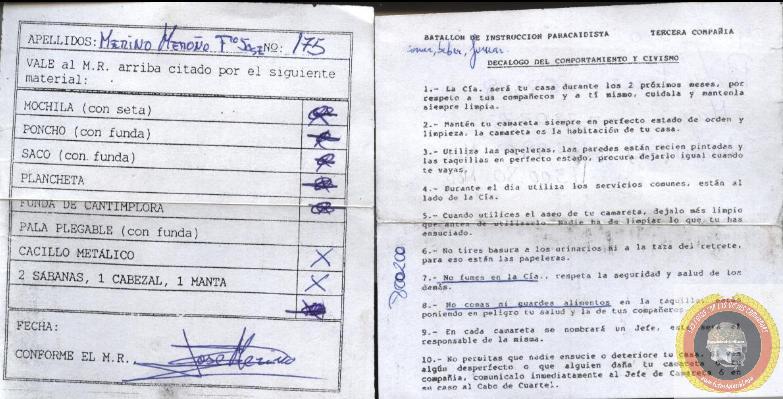 APELLIDOS: MERINO MEROÑO Fco José Nº: 175
VALE al M.R. arriba citado por el siguiente
material:
MOCHILA (con seta)
PONCHO (con funda)
SACO (con funda)
PLANCHETA
FUNDA DE CANTIMPLORA
PALA PLEGABLE (con funda)
CACILLO METÁLICO X
2 SÁBANAS, 1 CABEZAL, 1 MANTA X
FECHA:
CONFORME EL M.R. José Merino
BATALLON DE INSTRUCCION PARACAIDISTA TERCERA COMPAÑIA
comer, beber, fumar
DECALOGO DEL COMPORTAMIENTO Y CIVISMO
1.- La Cía. será tu casa durante los 2 próximos meses, por
respeto a tus compañeros y a tí mismo, cuídala y mantenla
siempre limpia.
2.- Mantén tu camareta siempre en perfecto estado de orden y
limpieza, la camareta es la habitación de tu casa.
3.- Utiliza las papeleras, las paredes están recien pintadas y
las taquillas en perfecto estado, procura dejarlo igual cuando
te vayas.
4.- Durante el día utiliza los servicios comunes, están al
lado de la Cía.
5.- Cuando utilices el aseo de tu camareta, dejalo más limpio
que antes de utilizarlo. Nadie ha de limpiar lo que tu has
ensuciado.
6.- No tires basura a los urinarios ni a la taza del retrete,
para eso están las papeleras.
7.- No fumes en la Cía., respeta la seguridad y salud de los
demás.
8.- No comas ni guardes alimentos en la taquilla, estás
poniendo en peligro tu salud y la de tus compañeros
9.- En cada camareta se nombrará un Jefe, este será el
responsable de la misma.
10.- No permitas que nadie ensucie o deteriore tu casa,
algún desperfecto o que alguien daña tu camareta
compañía, comunícalo inmediatamente al Jefe de Camareta
su caso al Cabo de Cuartel.
800200